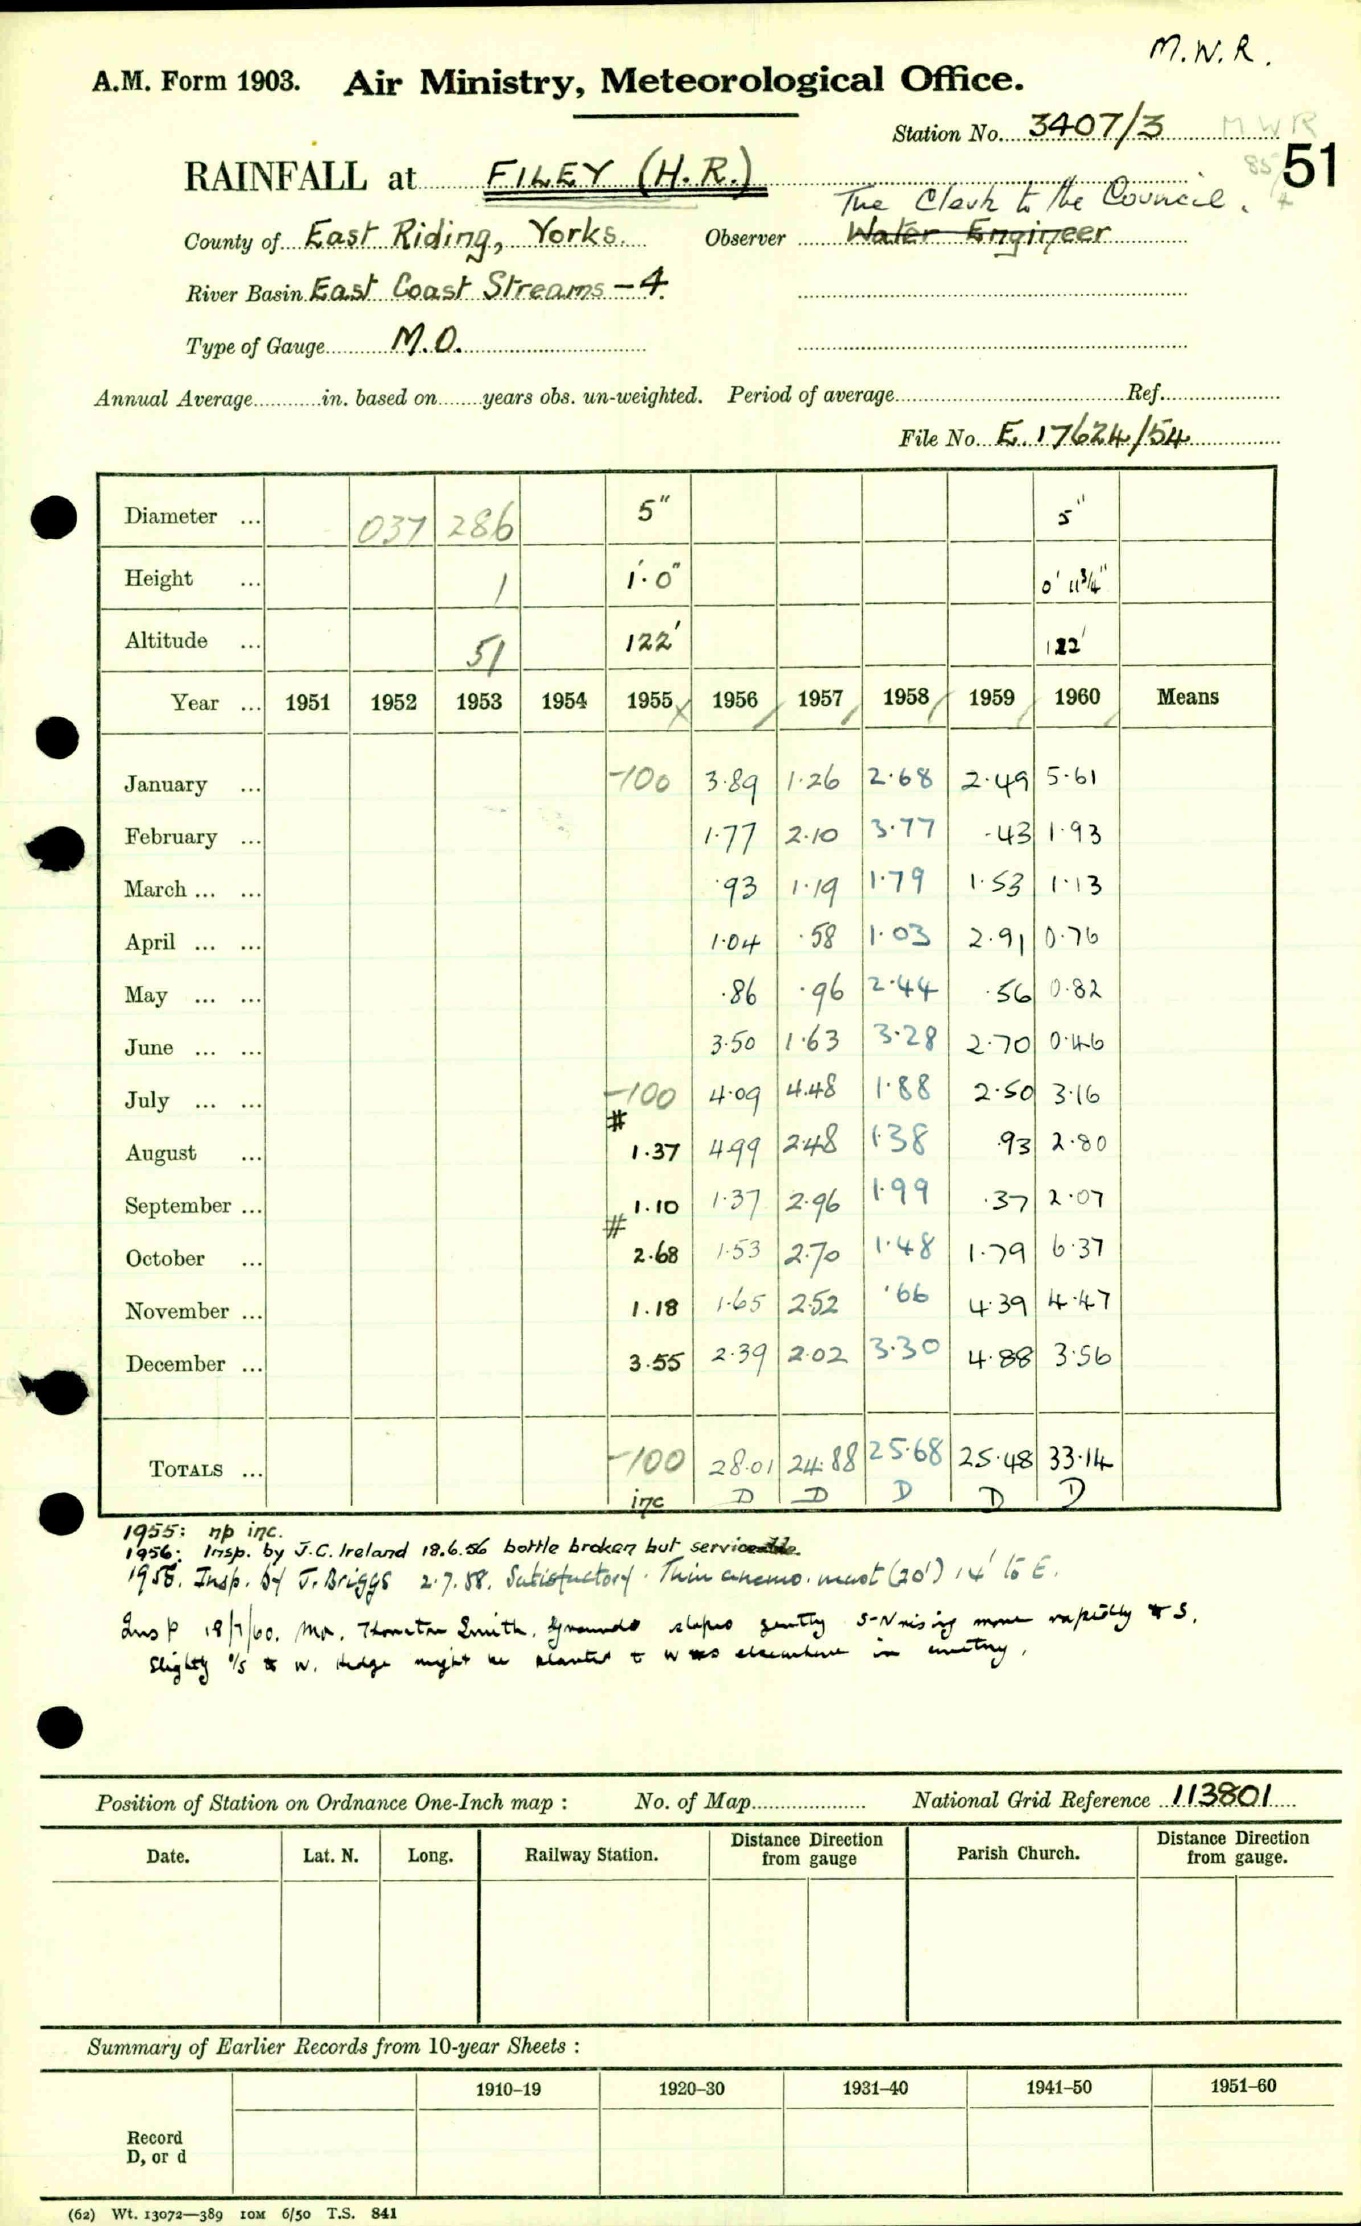 M.W.R.
A.M. Form 1903. Air Ministry, Meteorological Office.
Station No. 3407/3 MWR
85/4 51
RAINFALL at FILEY (H.R.)
The Clerk to the Council.
County of East Riding, Yorks. Observer Water Engineer
River Basin East Coast Streams - 4.
Type of Gauge M.O.
Annual Average in. based on years obs. un-weighted. Period of average Ref.
File No. E. 17624/54
Diameter ... 037 286 5" 5"
Height ... 1 1'.0" 0' 11¾"
Altitude ... 51 122' 122'
Year ... 1951 1952 1953 1954 1955 X 1956 / 1957 / 1958 / 1959 / 1960 / Means
January ... -100 3.89 1.26 2.68 2.49 5.61
February ... 1.77 2.10 3.77 .43 1.93
March ... ... .93 1.19 1.79 1.53 1.13
April ... ... 1.04 .58 1.03 2.91 0.76
May ... ... .86 .96 2.44 .56 0.82
June ... ... 3.50 1.63 3.28 2.70 0.46
July ... ... -100 4.09 4.48 1.88 2.50 3.16
August ... # 1.37 4.99 2.48 1.38 .93 2.80
September ... 1.10 1.37 2.96 1.99 .37 2.07
October ... # 2.68 1.53 2.70 1.48 1.79 6.37
November ... 1.18 1.65 2.52 .66 4.39 4.47
December ... 3.55 2.39 2.02 3.30 4.88 3.56
TOTALS ... -100 28.01 24.88 25.68 25.48 33.14
inc D D D D D
1955: np inc.
1956: Insp. by J.C. Ireland 18.6.56 bottle broken but serviceable.
1958. Insp. by J. Briggs 2.7.58. Satisfactory. Thin anemo. mast (20') 14' to E.
Insp 18/7/60. Mr. Thornton Smith. Grounds slopes gently S-N rising more rapidly to S.
Slightly o/s to W. Hedge might be planted to W as elsewhere in
Position of Station on Ordnance One-Inch map : No. of Map National Grid Reference 113801
Date. Lat. N. Long. Railway Station. Distance Direction from gauge Parish Church. Distance Direction from gauge.
Summary of Earlier Records from 10-year Sheets :
1910-19 1920-30 1931-40 1941-50 1951-60
Record
D, or d
(62) Wt. 13072—389 10M 6/50 T.S. 841